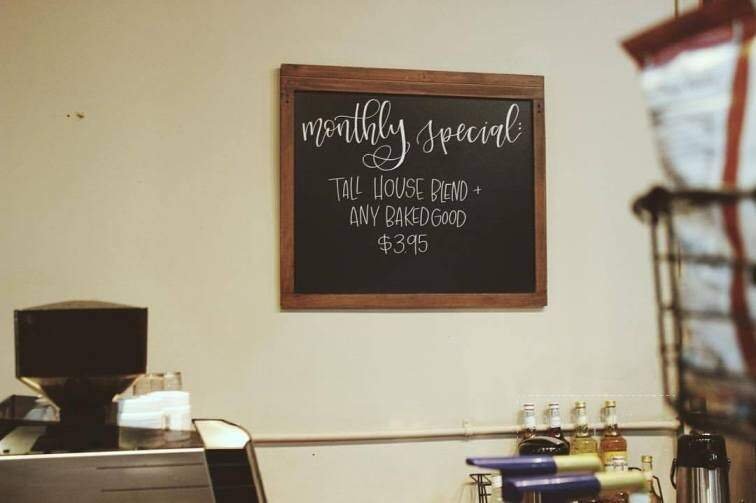 monthly special:
TALL HOUSE BLEND +
ANY BAKED GOOD
$3.95